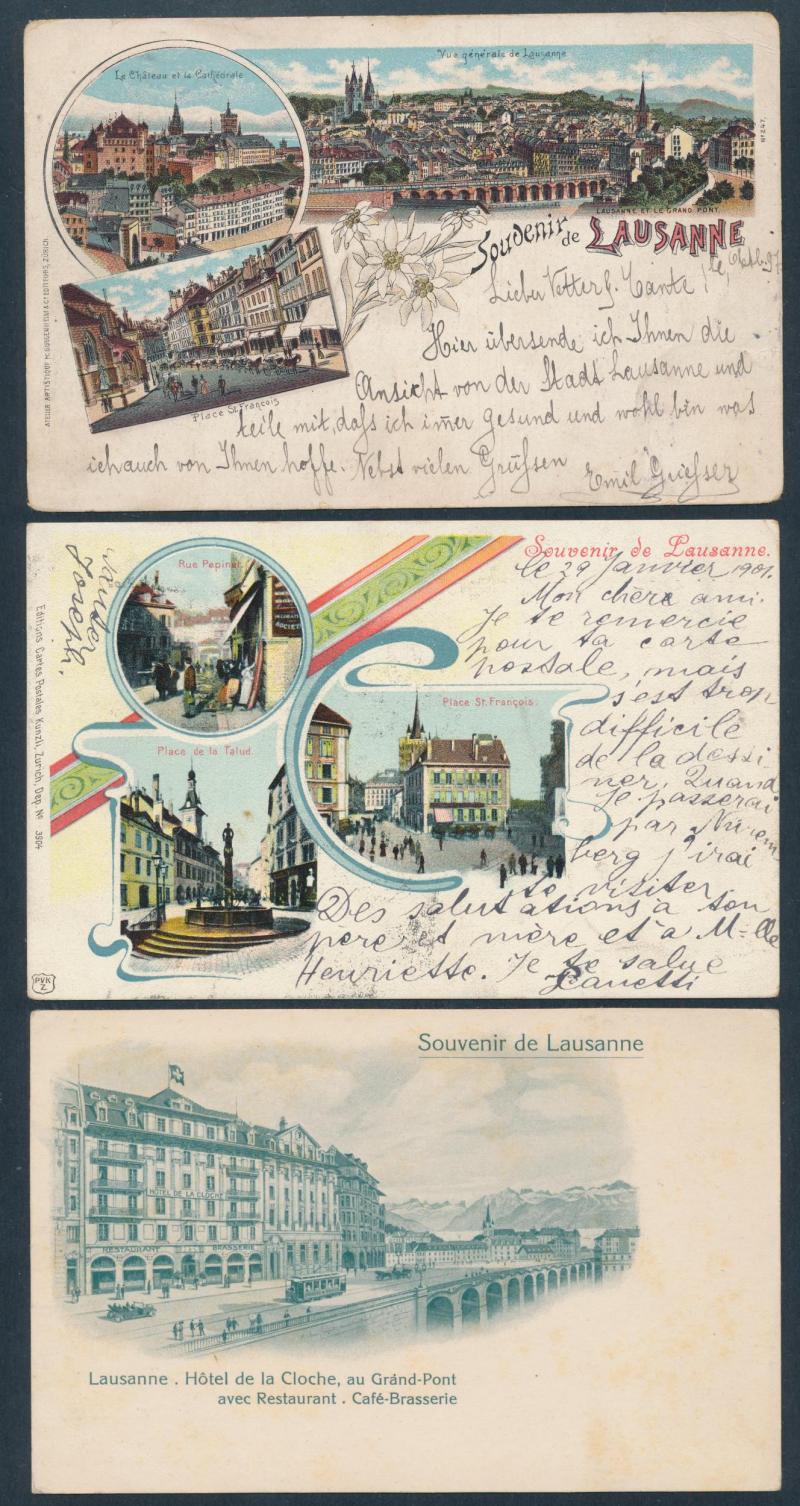 Le Château et la Cathédrale
Vue générale de Lausanne
LAUSANNE ET LE GRAND PONT.
Nº 247.
Souvenir de LAUSANNE
Place St. François
ATELIER ARTISTIQUE H. GUGGENHEIM & Cº EDITEURS, ZÜRICH.
Lieber Vetter & Tante!
Hier übersende ich Ihnen die
Ansicht von der Stadt Lausanne und
teile mit, daſs ich im̄er gesund und wohl bin was
ich auch von Ihnen hoffe. Nebst vielen Grüſsen
Emil
Souvenir de Lausanne.
Rue Pepinet.
Place St. François.
Place de la Talud.
Editions Cartes Postales Kunzli, Zurich, Dep. Nº 3904
PVK
Z
Joseph.
le 29 Janvier 1901.
Mon chère ami.
Je te remercie
pour ta carte
postale, mais
s'est trop
difficile
de la dessi
ner, Quand
Je passerai
par Nurem
berg j'irai
te visiter
Des salutations a ton
pere et mère et a M-lle
Henriette. Je te salue
Souvenir de Lausanne
HÔTEL DE LA CLOCHE
RESTAURANT BRASSERIE
Lausanne . Hôtel de la Cloche, au Grand-Pont
avec Restaurant . Café-Brasserie